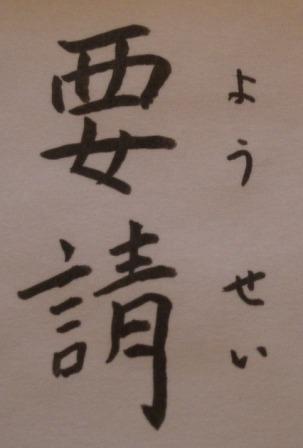 要請
ようせい